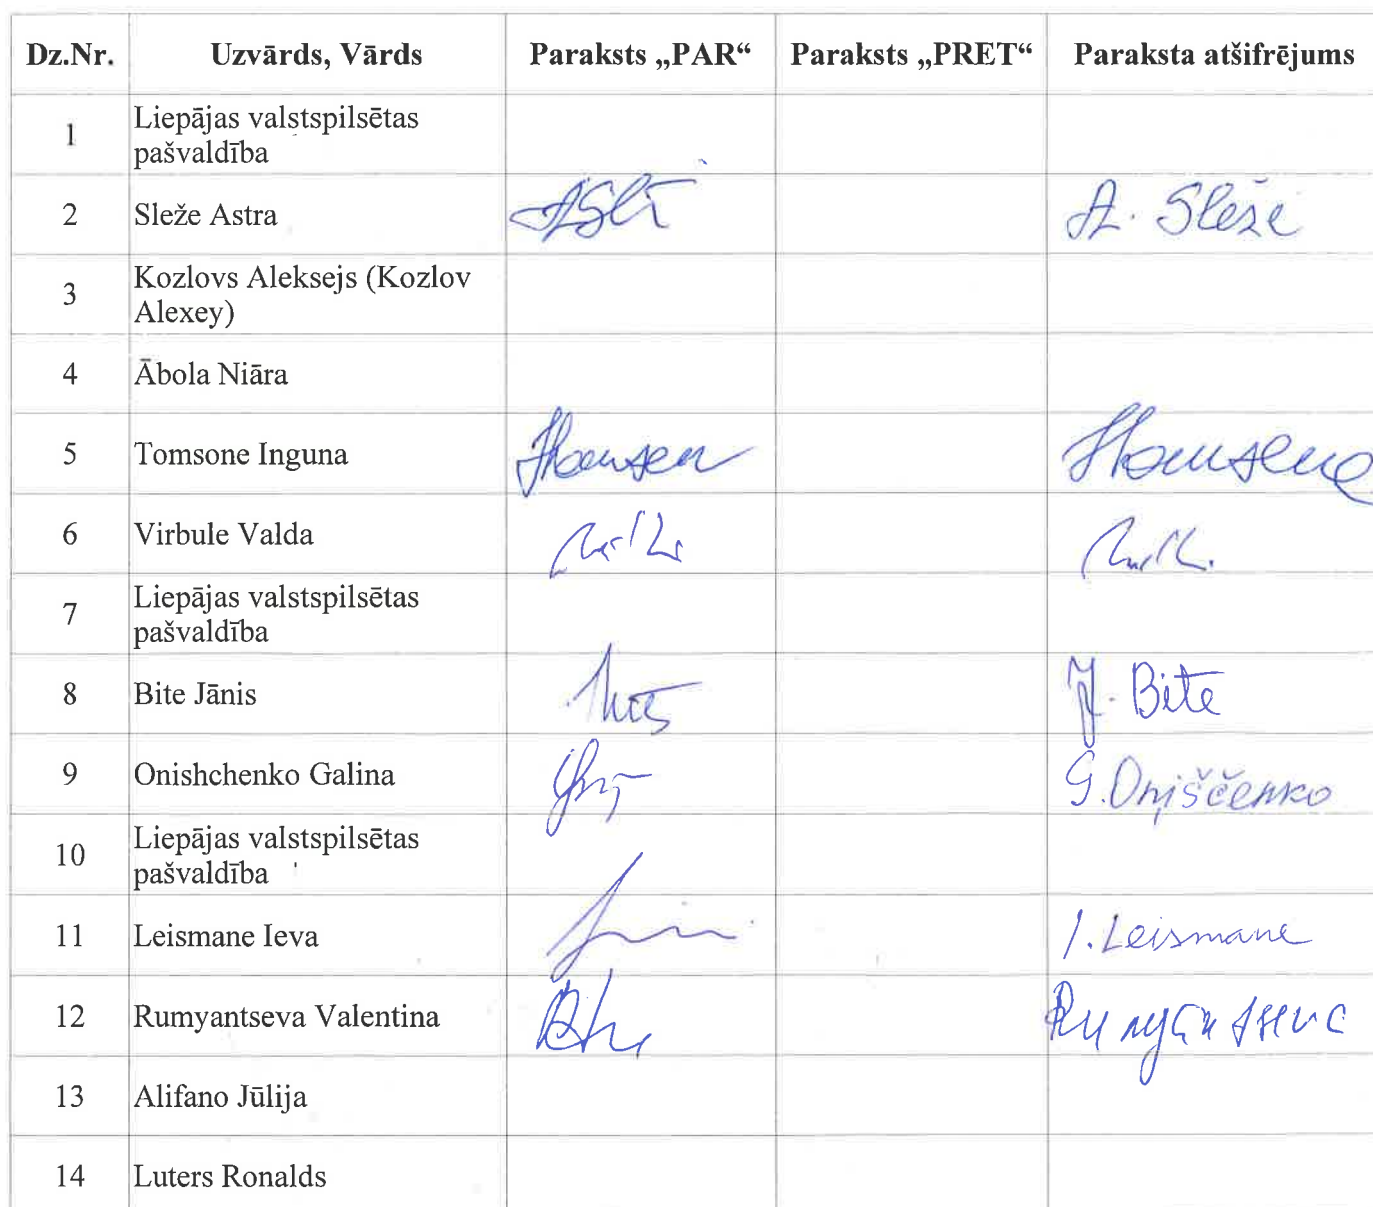 Dz.Nr. Uzvārds, Vārds Paraksts „PAR“ Paraksts „PRET“ Paraksta atšifrējums
1 Liepājas valstspilsētas
pašvaldība
2 Sleže Astra A. Sleže
3 Kozlovs Aleksejs (Kozlov
Alexey)
4 Ābola Niāra
5 Tomsone Inguna
6 Virbule Valda
7 Liepājas valstspilsētas
pašvaldība
8 Bite Jānis J. Bite
9 Onishchenko Galina G. Oņiščenko
10 Liepājas valstspilsētas
pašvaldība
11 Leismane Ieva I. Leismane
12 Rumyantseva Valentina Rumyantseva
13 Alifano Jūlija
14 Luters Ronalds